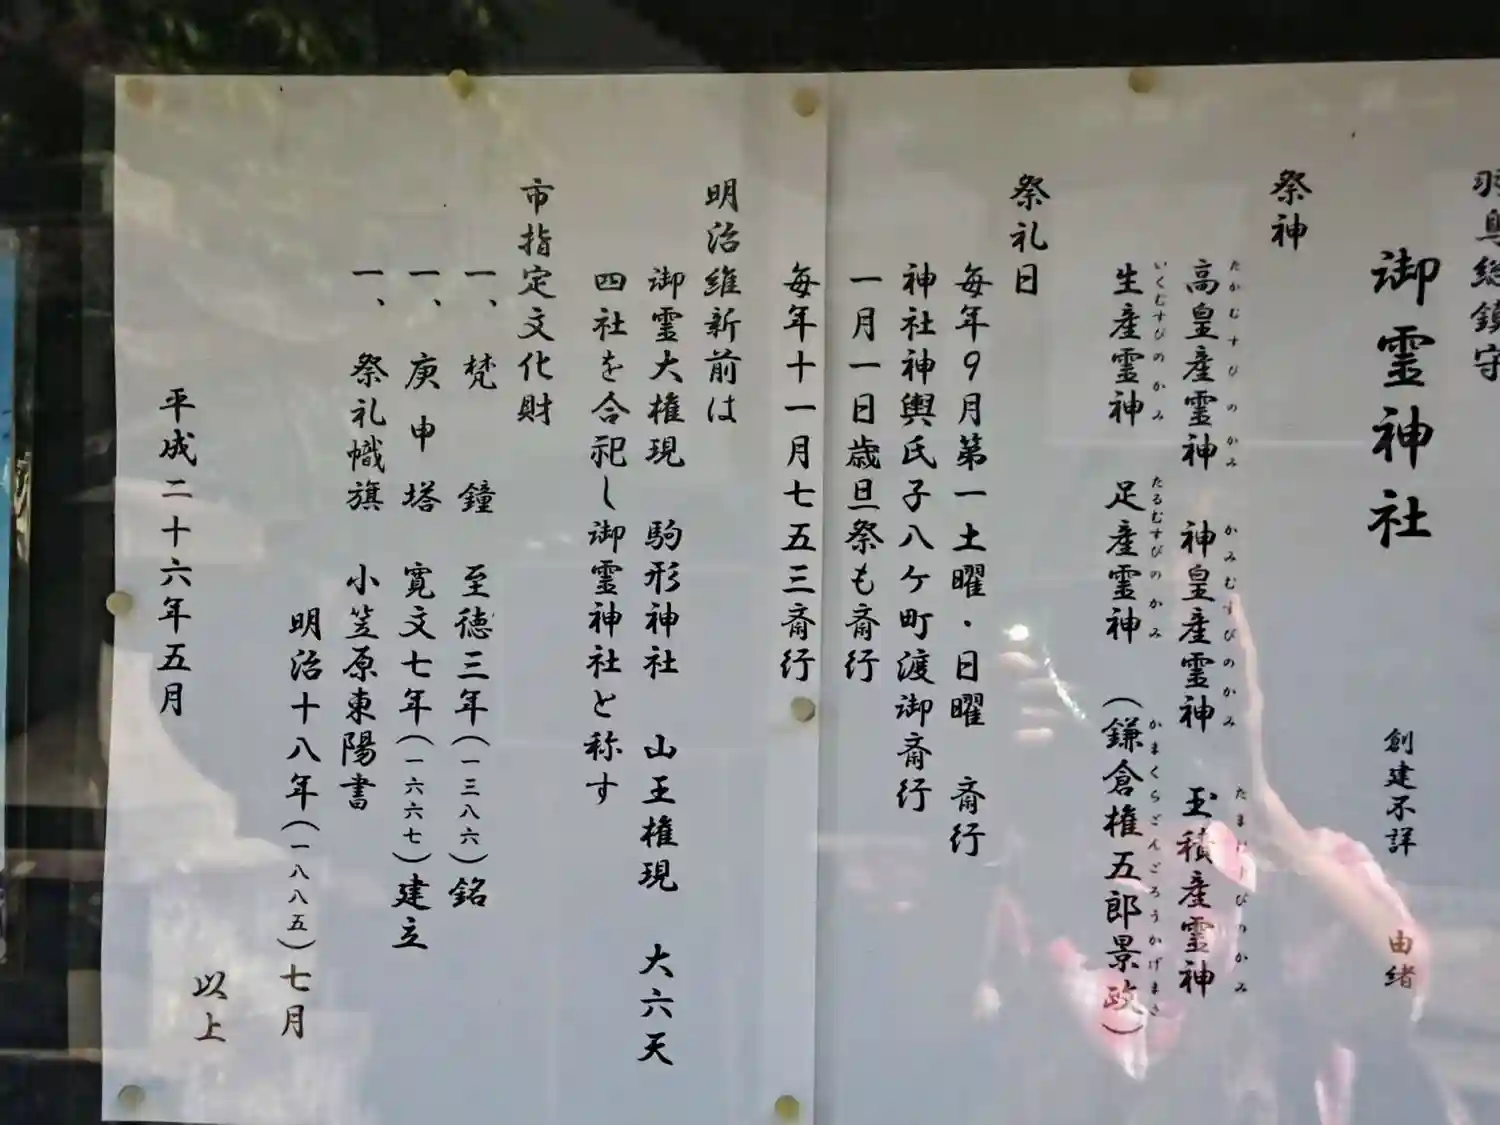 羽奥総鎮守
御霊神社　創建不詳　由緒
祭神
高皇産霊神　神皇産霊神　玉積産霊神
たかむすびのかみ　かみむすびのかみ　たまけすびのかみ
生産霊神　足産霊神　(鎌倉権五郎景政)
いくむすびのかみ　たるむすびのかみ　かまくらごんごろうかげまさ
祭礼日
毎年9月第一土曜・日曜　斎行
神社神輿氏子八ケ町渡御斎行
一月一日歳旦祭も斎行
毎年十一月七五三斎行
明治維新前は
御霊大権現　駒形神社　山王権現　大六天
四社を合祀し御霊神社と称す
市指定文化財
一、梵　鐘　至徳三年(一三八六)銘
一、庚申塔　寛文七年(一六六七)建立
一、祭礼幟旗　小笠原東陽書
明治十八年(一八八五)七月
以上
平成二十六年五月